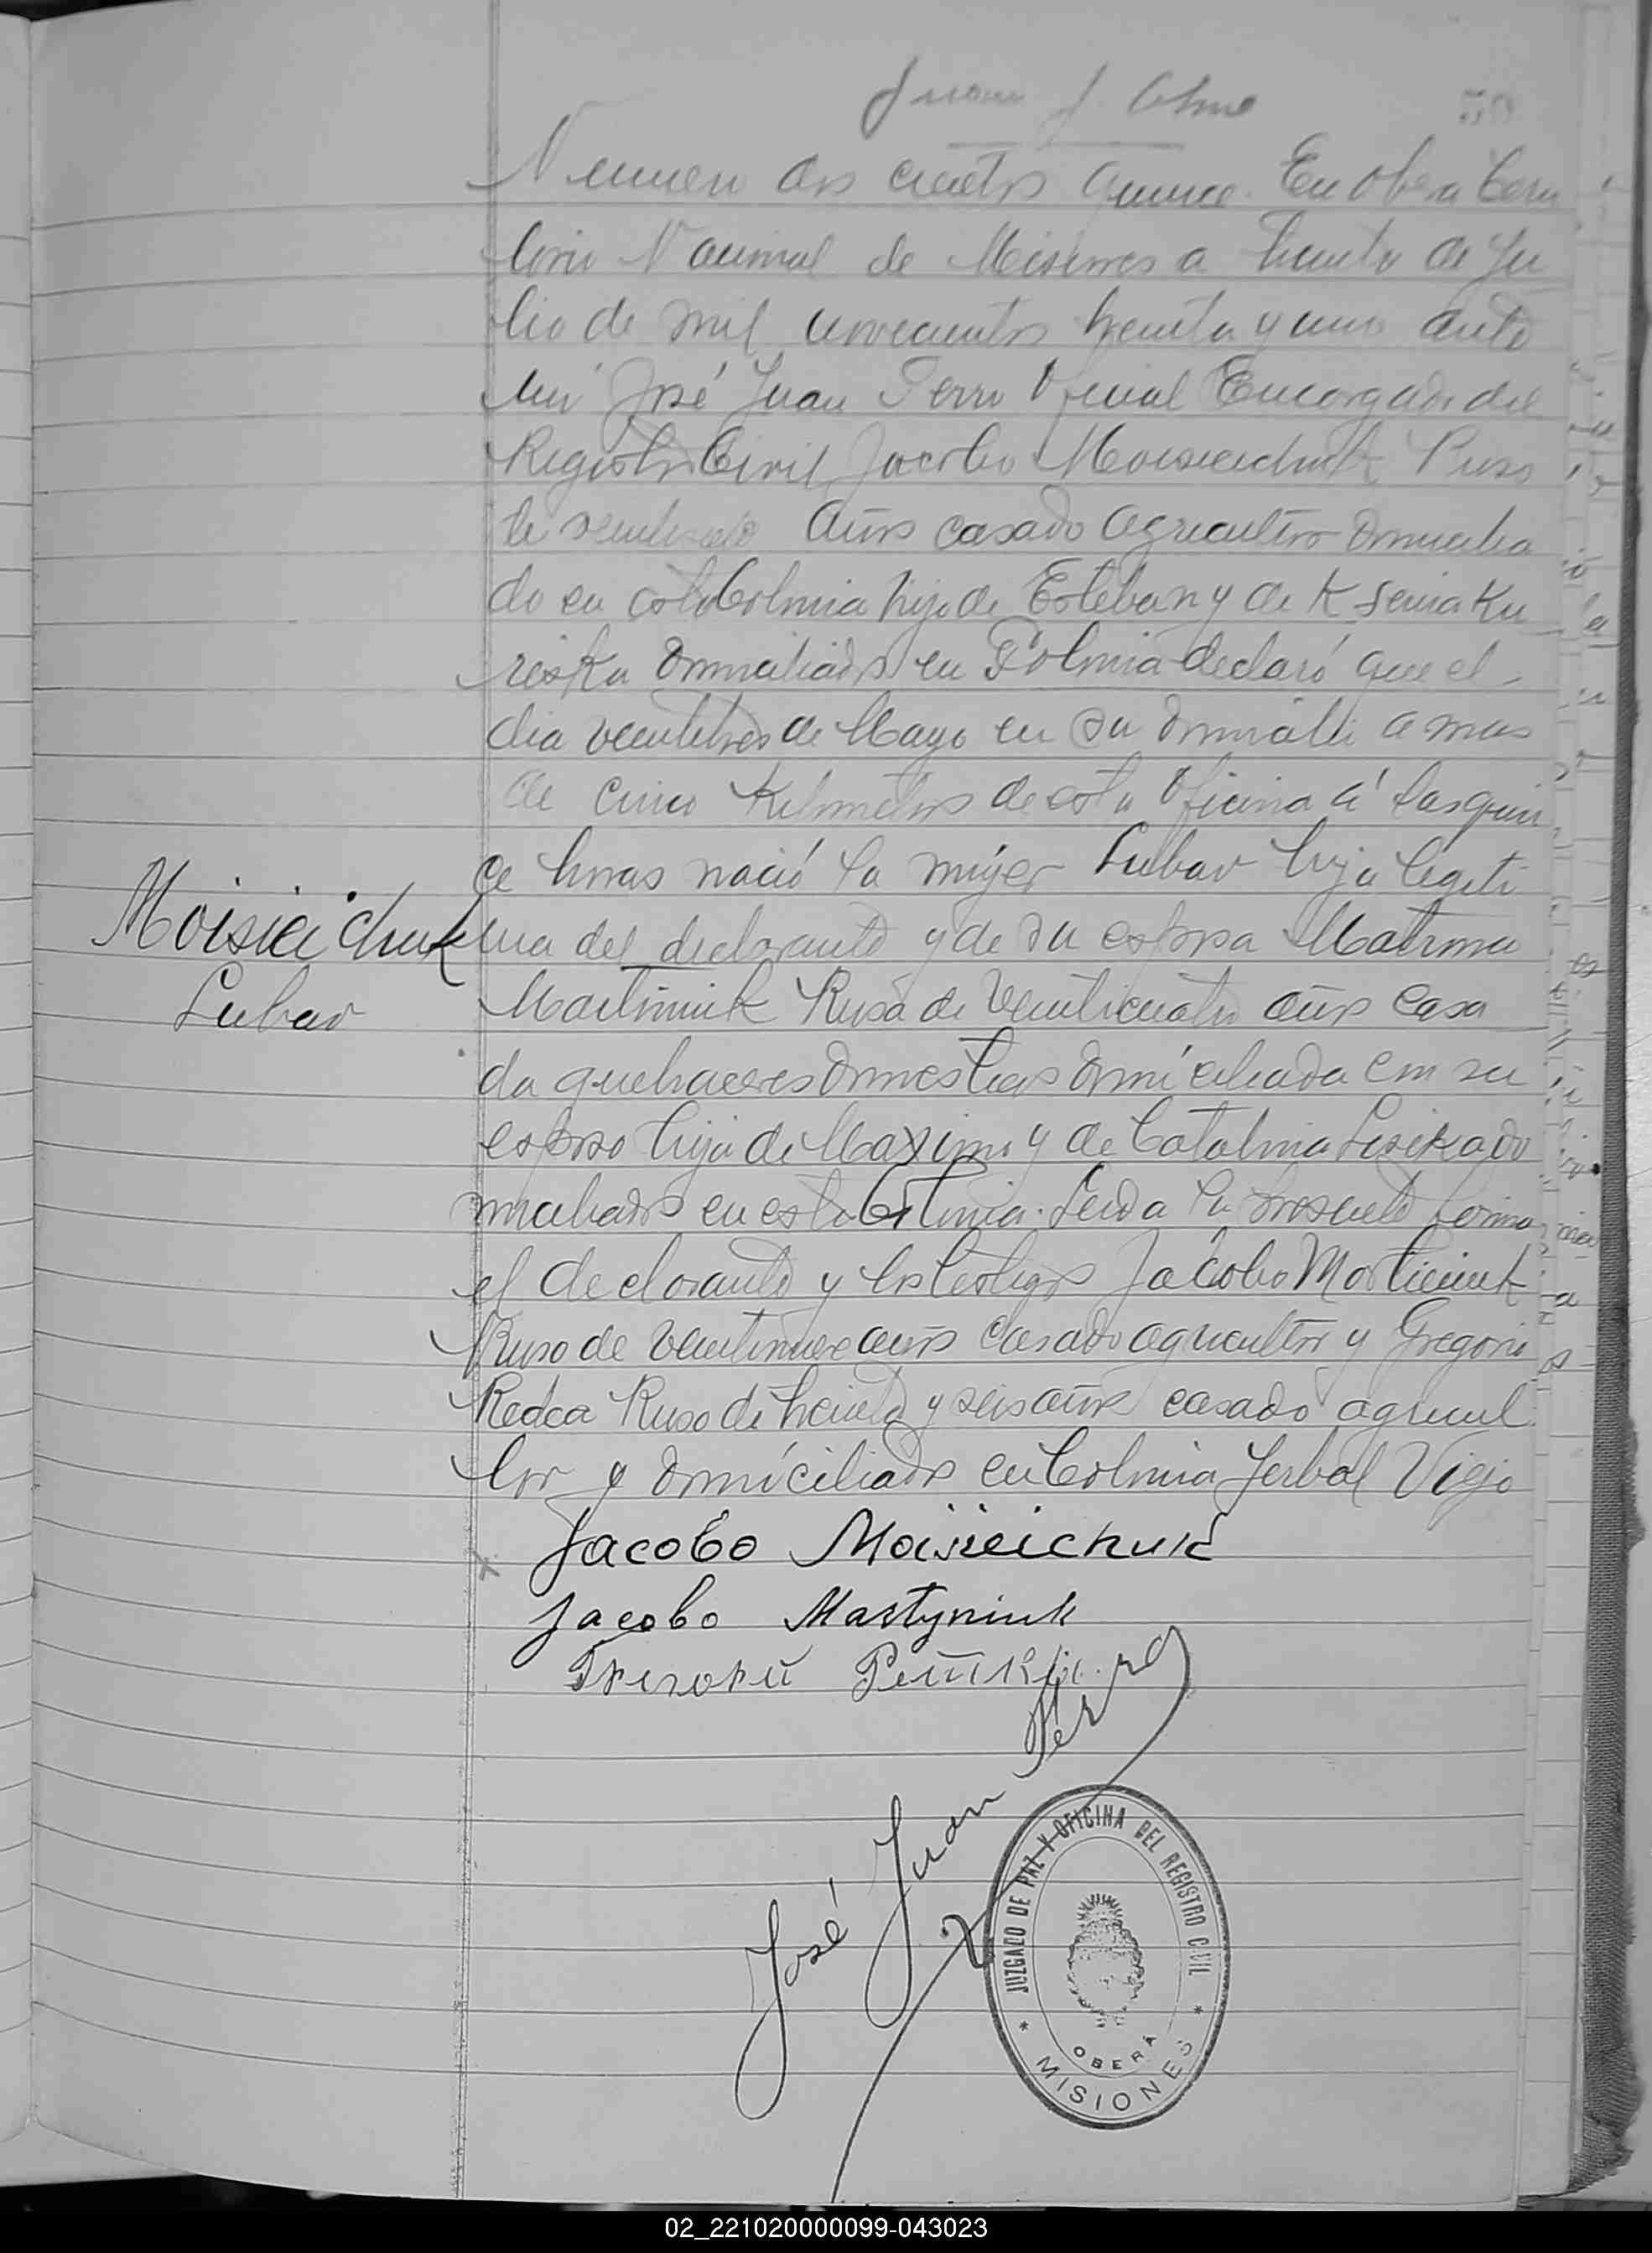 Juan J.
Numero dos cientos quince. En Oberá Terri
torio Nacional de Misiones a treinta de Ju
lio de mil novecientos treinta y uno ante
mi José Juan Perro Oficial Encargado del
Registro Civil Jacobo Moisieichuk Ruso
de años casado agricultor domicilia
do en esta Colonia hijo de Esteban y de Ksenia Ku
reska domiciliados en Polonia declaró que el
dia veintitres de Mayo en su domicilio a mas
de cinco Kilometros de esta Oficina á las quin
ce horas nació la mujer Lubav hija legiti
Moisieichuk Lubav
ma del declarante y de su esposa Matrona
Martiniuk Rusa de veinticuatro años casa
da quehaceres domesticos domiciliada con su
esposo hija de Maximo y de Catalina Lisicka do
miciliados en esta Colonia. Leida la presente firma
el declarante y los testigos Jacobo Martiniuk
Ruso de veintinueve años casado agricultor y Gregorio
Redca Ruso de treinta y seis años casado agricul
tor y domiciliados en Colonia Yerbal Viejo
Jacobo Moisieichuk
Jacobo Martyniuk
José Juan Perro
JUZGADO DE PAZ Y OFICINA DEL REGISTRO CIVIL
OBERÁ
* MISIONES *
02_221020000099-043023